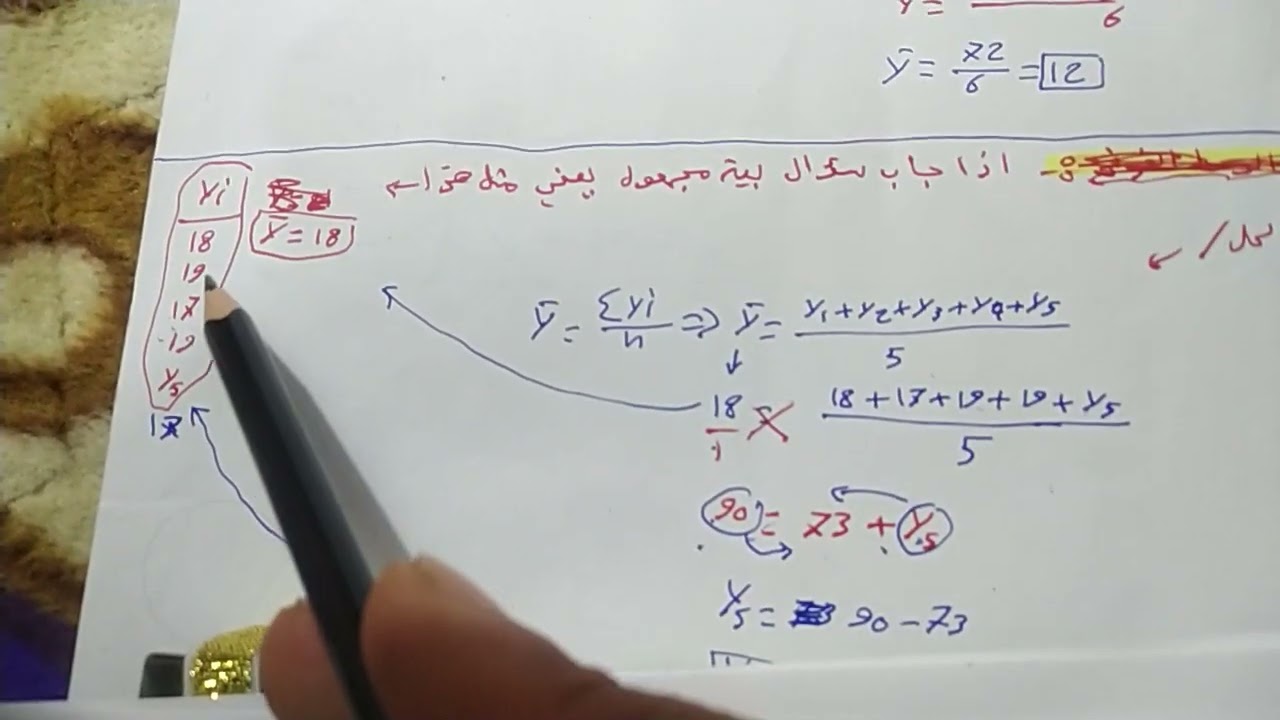 y =
6
ȳ = 72/6 = 12
اذا جاب سؤال بية مجهول يعني مثل هذا ←
yi
18
19
17
19
y₅
17
ȳ = 18
ȳ = Σyi/n ⇒ ȳ = y₁+y₂+y₃+y₄+y₅/5
18/1 18+17+19+19+y₅/5
90 = 73 + y₅
y₅ = 90 − 73